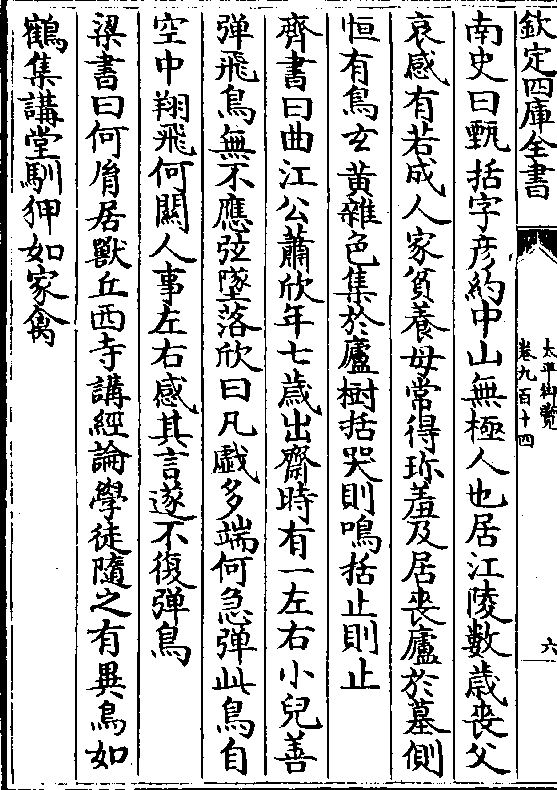 欽定四庫全書
太平御覽
卷九百十四
六
南史曰甄括字彦約中山無極人也居江陵數歲喪父
哀感有若成人家貧養母常得珎羞及居喪廬於墓側
恒有鳥玄黄雜色集於廬樹括哭則鳴括止則止
齊書曰曲江公蕭欣年七歲出齋時有一左右小兒善
彈飛鳥無不應弦墜落欣曰凡戲多端何急彈此鳥自
空中翔飛何關人事左右感其言遂不復彈鳥
梁書曰何胤居獸丘西寺講經論學徒隨之有異鳥如
鶴集講堂馴狎如家禽